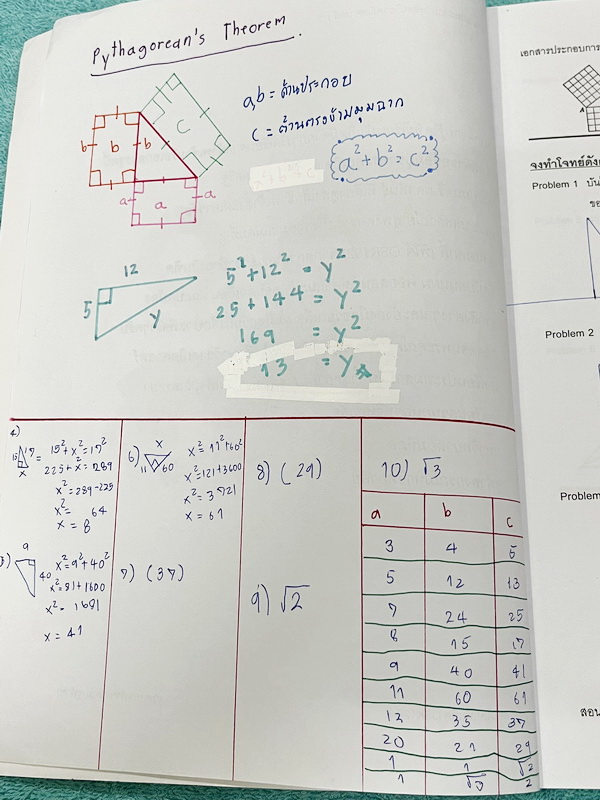 Pythagorean's Theorem
a,b = ด้านประกอบ
c = ด้านตรงข้ามมุมฉาก
a² + b² = c²
b
b
b
c
a
a
a
12
5
y
5² + 12² = y²
25 + 144 = y²
169 = y²
13 = y
4)
15
17
x
= 15² + x² = 17²
225 + x² = 289
x² = 289 - 225
x² = 64
x = 8
9
40
x² = 9² + 40²
x² = 81 + 1600
x² = 1681
x = 41
6)
x
11
60
x² = 11² + 60²
x² = 121 + 3600
x² = 3721
x = 61
7) (37)
8) (29)
9) √2
10) √3
a b c
3 4 5
5 12 13
7 24 25
8 15 17
9 40 41
11 60 61
12 35 37
20 21 29
1 1 √2
1 √3 2
เอกสารประกอบการ
A
จงทำโจทย์ดัง
Problem 1 บัน
Problem 2
Problem
สอน